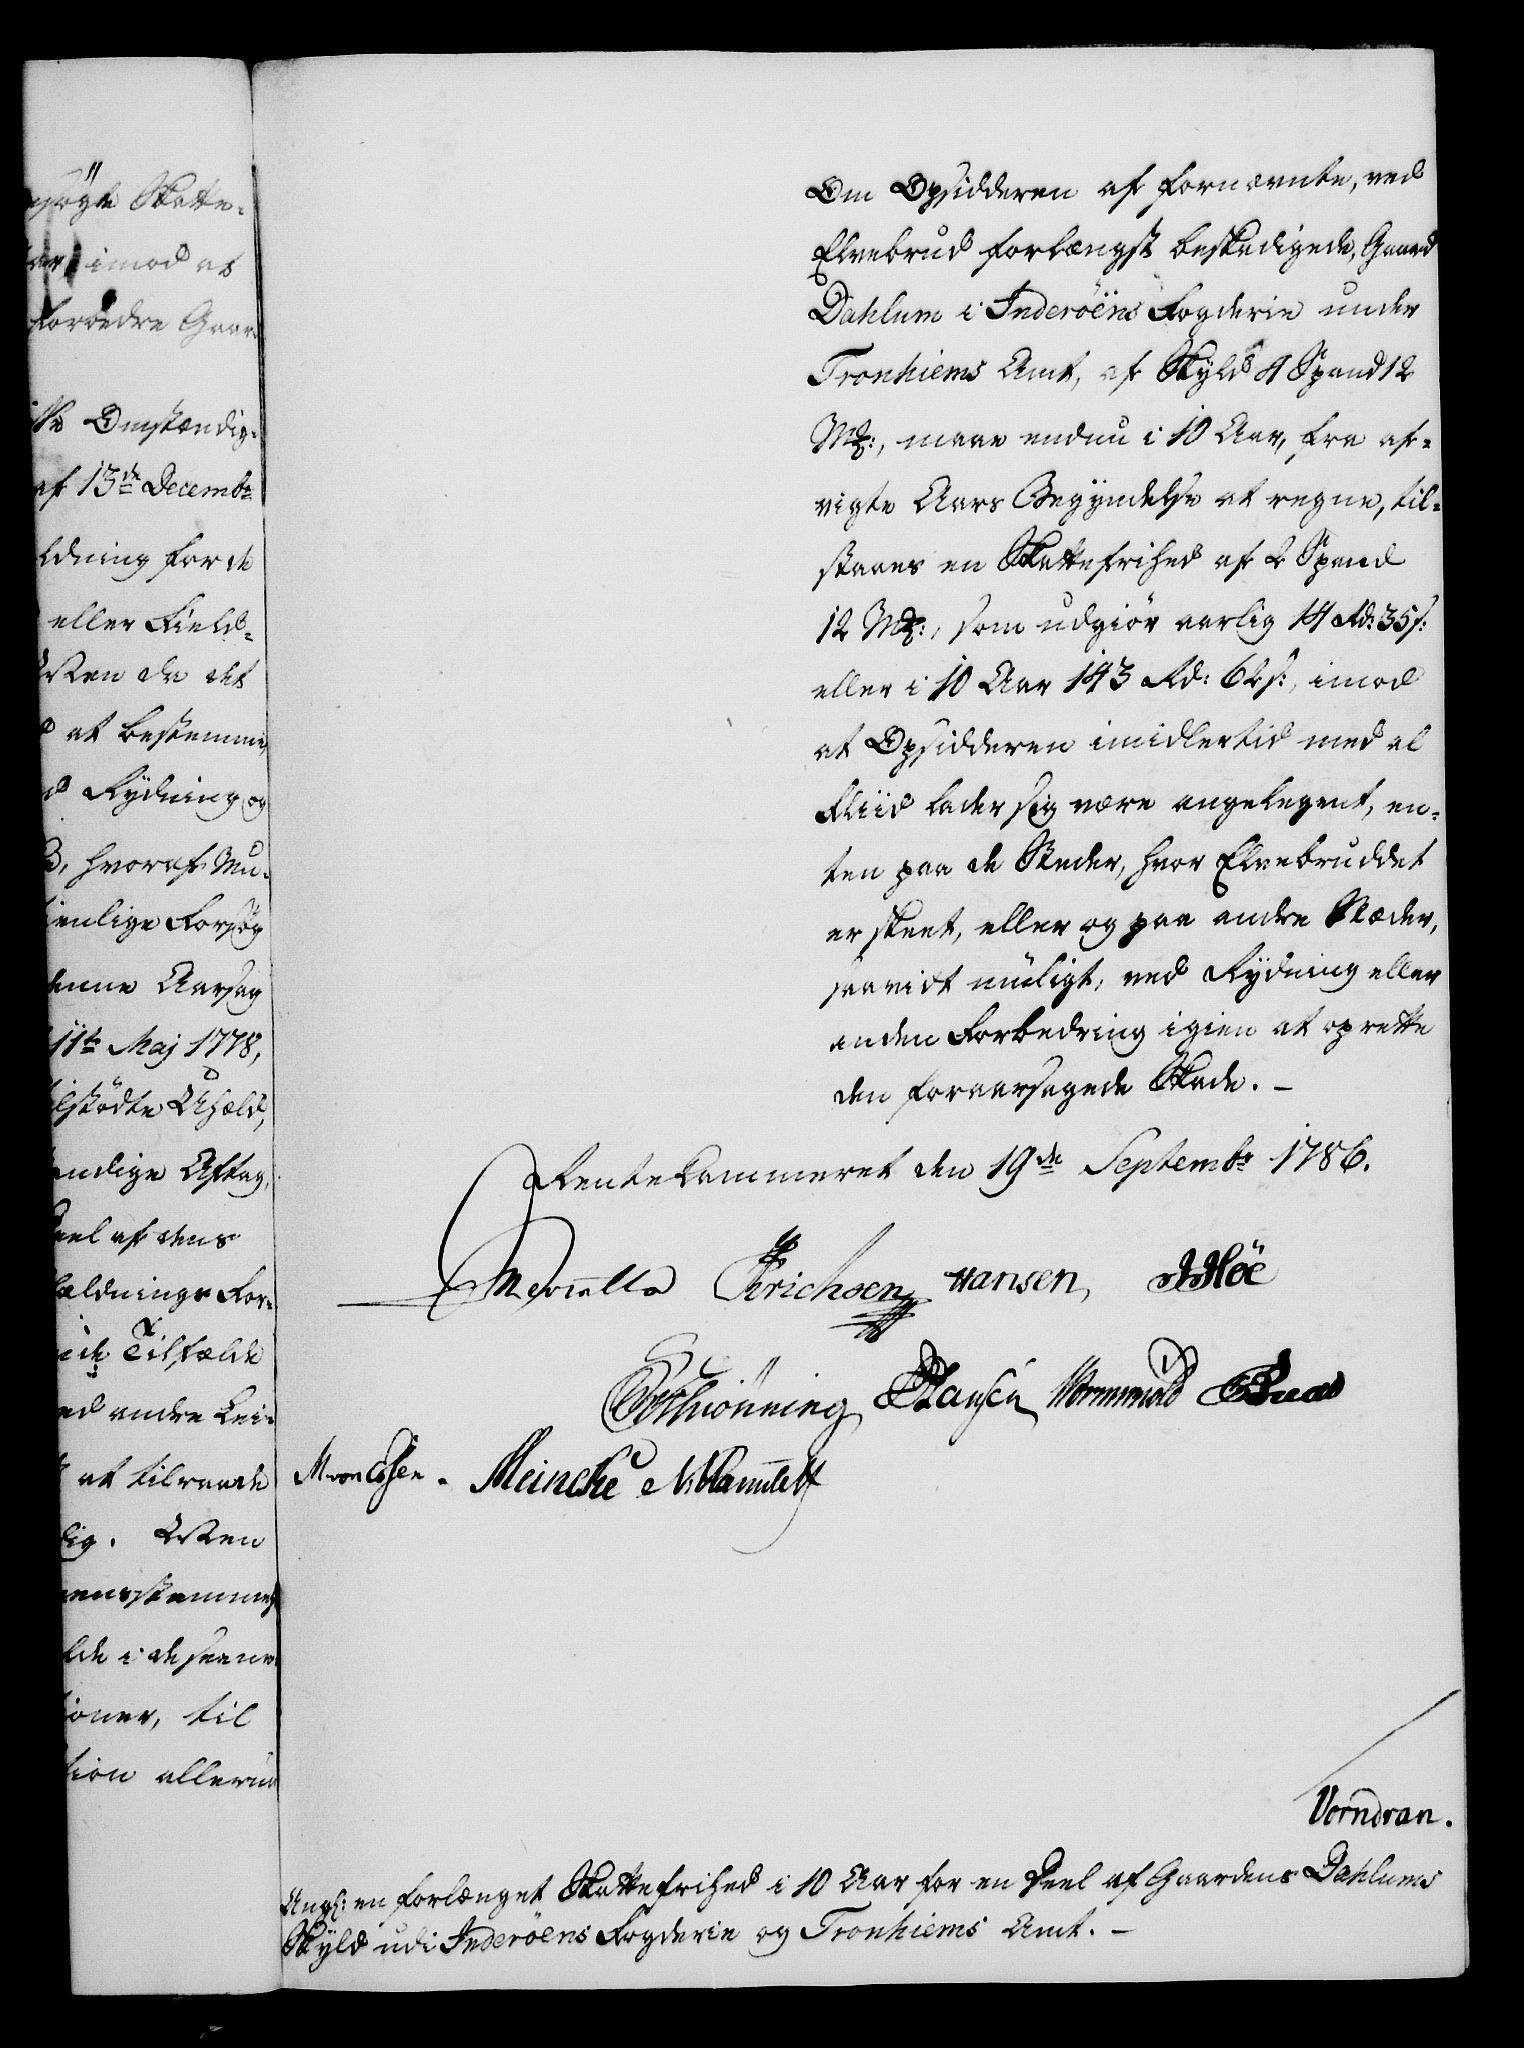 søgte Skatte-
imod at
forbedre Gaar
Omstændig-
af 13de Decembr
ldning for de
eller Field-
Men da det
at bestemme,
Rydning og
hvoraf Mu-
ienlige Forsøg
denne Aarsag
11te Maj 1778,
Uheld,
Aftag,
eel af dens
ældnings For-
Tilfælde
ed andre Lei-
at tilraade
lig. Men
lde i de seene
ioner, til
tion allerun
Om Opsidderen af fornævnte, ved
Elvebrud forlængst beskadigede, Gaard
Dahlum i Inderöens Fogderie under
Tronhiems Amt, af Skyld 4 Spand 12
Mk:, maae endnu i 10 Aar, fra af-
vigte Aars Begyndelse at regne, til-
staaes en Skattefrihed af 2 Spand
12 Mk:, som udgiör aarlig 14 Rd: 35 s:
eller i 10 Aar 143 Rd: 62 s:, imod
at Opsidderen imidlertid med al
Fliid lader sig være angelegent, en-
ten paa de Steder, hvor Elvebruddet
er skeet, eller og paa andre Stæder,
saavidt müligt, ved Rydning eller
anden Forbedring igien at oprette
den foraarsagede Skade. -
Rentekammeret den 19de Septembr 1786.
Erichsen Hansen, Möe
Schiönning Hansen Wormskiold
Meincke
Vorndran.
Angl: en forlænget Skattefrihed i 10 Aar for en Deel af Gaardens Dahlums
Skyld udi Inderöens Fogderie og Tronhiems Amt. -